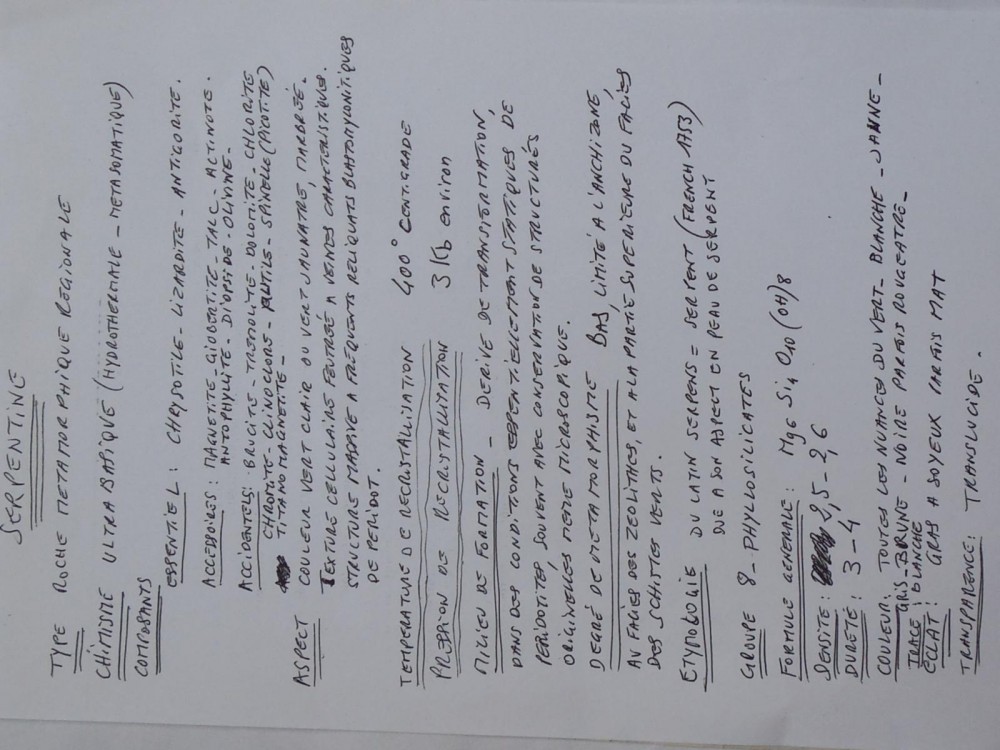 SERPENTINE
TYPE ROCHE METAMORPHIQUE REGIONALE
CHIMISME ULTRABASIQUE (HYDROTHERMALE - METASOMATIQUE)
COMPOSANTS
ESSENTIEL : CHRYSOTILE - LIZARDITE - ANTIGORITE.
ACCESSOIRES : MAGNETITE - GIOBERTITE - TALC - ACTINOTE.
ANTOPHYLLITE - DIOPSIDE - OLIVINE -
ACCIDENTELS : BRUCITE - TREMOLITE - DOLOMITE - CHLORITE
CHROMITE - CLINOCLORE - RUTILE - SPINELLE (PICOTITE)
TITANOMAGNETITE -
ASPECT COULEUR VERT CLAIR OU VERT JAUNATRE, MARBRÉE.
TEXTURE CELLULAIRE FEUTRÉE A VEINES CARACTERISTIQUES.
STRUCTURE MASSIVE A FREQUENTS RELIQUATS BLASTOMYLONITIQUES
DE PERIDOT.
TEMPERATURE DE RECRISTALLISATION 400° CENTIGRADE
PRESSION DE RECRISTALLISATION 3 Kb environ
MILIEU DE FORMATION - DERIVE DE TRANSFORMATION,
DANS DES CONDITIONS ESSENTIELLEMENT STATIQUES DE
PERIDOTITES, SOUVENT AVEC CONSERVATION DE STRUCTURES
ORIGINELLES MEME MICROSCOPIQUE.
DEGRÉ DE METAMORPHISME BAS LIMITÉ A L'ANCHIZONE,
AU FACIES DES ZEOLITHES, ET A LA PARTIE SUPERIEURE DU FACIÈS
DES SCHISTES VERTS.
ETYMOLOGIE DU LATIN SERPENS = SERPENT (FRENCH 1753)
DUE A SON ASPECT EN PEAU DE SERPENT
GROUPE 8 - PHYLLOSILICATES
FORMULE GENERALE : Mg6 Si4 O10 (OH)8
DENSITE : 2,5 - 2,6
DURETÉ : 3 - 4
COULEUR : TOUTES LES NUANCES DU VERT - BLANCHE - JAUNE -
GRIS - BRUNE - NOIRE PARFOIS ROUGEATRE -
TRACE : BLANCHE
ÉCLAT : GRAS A SOYEUX PARFOIS MAT
TRANSPARENCE : TRANSLUCIDE.